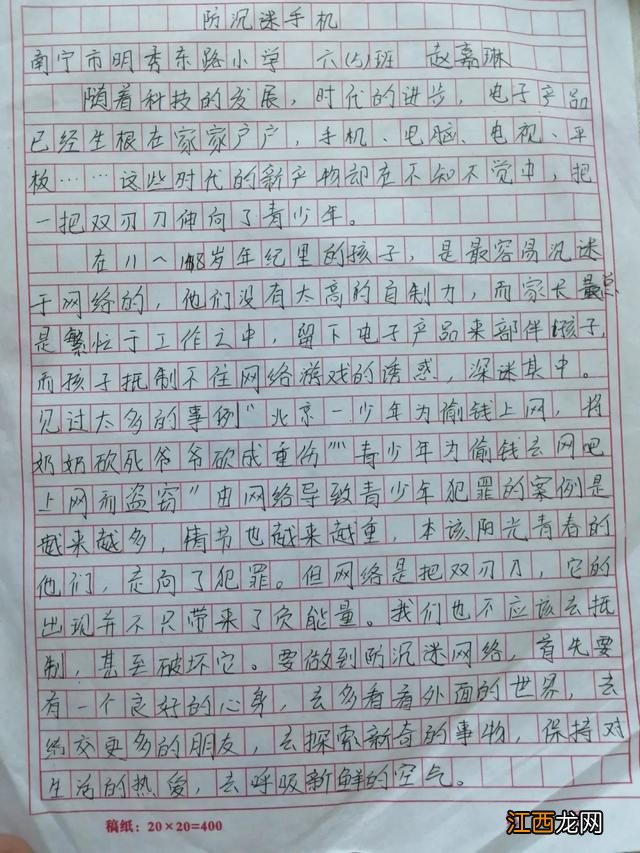 防沉迷手机
南宁市明秀东路小学 六(5)班 赵嘉琳
随着科技的发展，时代的进步，电子产品
已经生根在家家户户，手机、电脑、电视、平
板……这些时代的新产物却在不知不觉中，把
一把双刃刀伸向了青少年。
在11～18岁年纪里的孩子，是最容易沉迷
于网络的，他们没有太高的自制力，而家长总
是繁忙于工作之中，留下电子产品来部伴孩子，
而孩子抵制不住网络游戏的诱惑，深迷其中。
见过太多的事例"北京一少年为偷钱上网，将
奶奶砍死爷爷砍成重伤""青少年为偷钱去网吧
上网而盗窃"由网络导致青少年犯罪的案例是
越来越多，情节也越来越重，本该阳光青春的
他们，走向了犯罪。但网络是把双刃刀，它的
出现并不只带来了负能量。我们也不应该去抵
制，甚至破坏它。要做到防沉迷网络，首先要
有一个良好的心身，去多看看外面的世界，去
结交更多的朋友，去探索新奇的事物，保持对
生活的热爱，去呼吸新鲜的空气。
稿纸：20×20=400
江西龙网